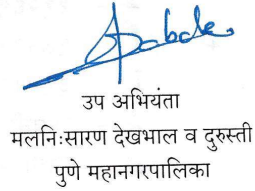 उप अभियंता
मलनिःसारण देखभाल व दुरुस्ती
पुणे महानगरपालिका